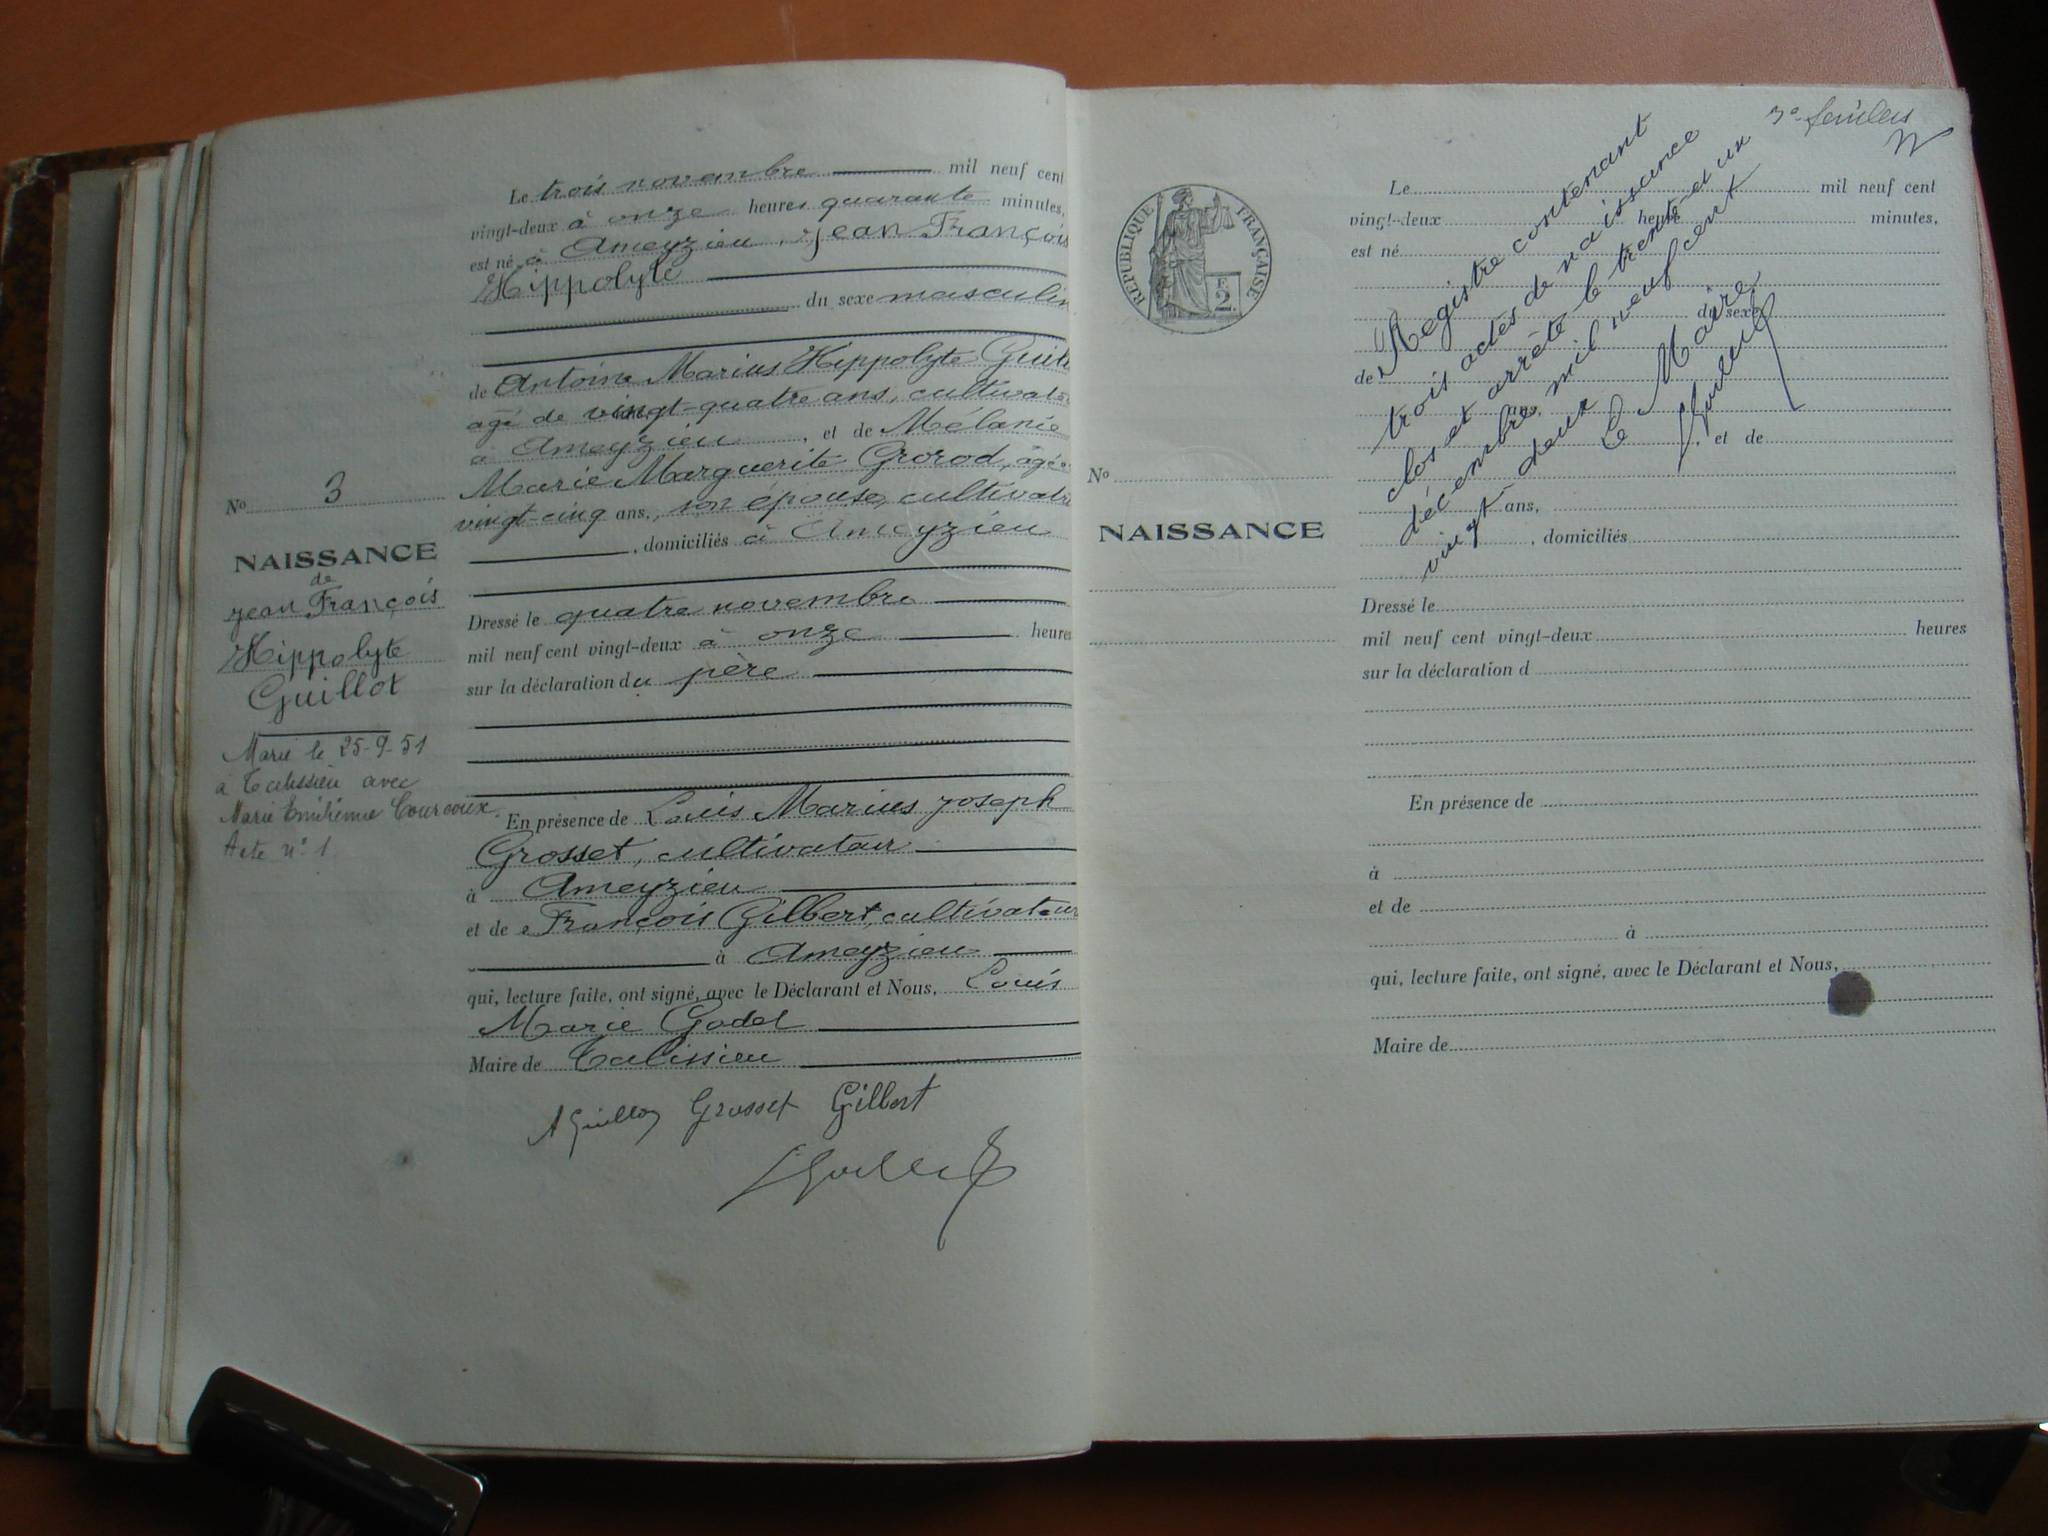 Le trois novembre mil neuf cent
vingt-deux à onze heures quarante minutes,
est né à Ameyzieu, Jean François
Hippolyte
du sexe masculin
de Antoine Marius Hippolyte
agé de vingt-quatre ans, cultivateur
à Ameyzieu, et de Mélanie
Marie Marguerite Gorod, âgée
vingt-cinq ans, son épouse, cultivatrice
, domiciliés à Ameyzieu
No 3
NAISSANCE
de
Jean François
Hippolyte
Guillot
Marié le 25-9-51
à Talissieu avec
Marie
Acte n° 1
Dressé le quatre novembre
mil neuf cent vingt-deux à onze heures
sur la déclaration du père
En présence de Louis Marius Joseph
Grosset, cultivateur
à Ameyzieu
et de François Gilbert, cultivateur
à Ameyzieu
qui, lecture faite, ont signé, avec le Déclarant et Nous, Louis
Marie Godet
Maire de Talissieu
Grosset Gilbert
3e
RÉPUBLIQUE FRANÇAISE
2
Le mil neuf cent
vingt-deux heure minutes,
est né
du sexe
de
ans,
, et de
No
ans,
NAISSANCE
, domiciliés
Registre contenant
trois actes de naissance
clos et arrêté le trente-et-un
décembre mil neuf cent
vingt-deux
Le Maire
Dressé le
mil neuf cent vingt-deux heures
sur la déclaration d
En présence de
à
et de
à
qui, lecture faite, ont signé, avec le Déclarant et Nous,
Maire de